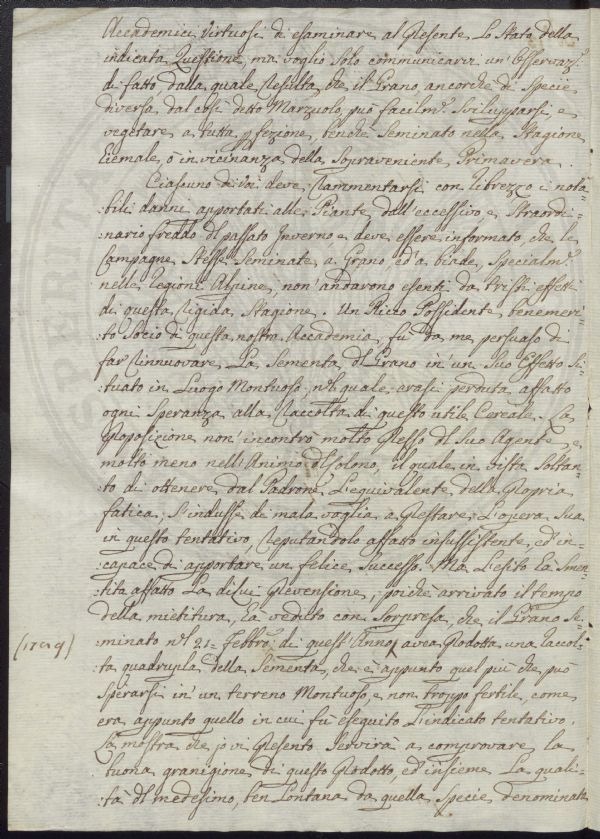 Accademici Virtuosi di esaminare al Presente Lo Stato della
indicata Questione, ma voglio Solo communicarvi un' Osservaz.e
di fatto, dalla quale Resulta, che il Grano, ancorche di Specie
diversa dal così detto Marzuolo, può facilm.e Svilupparsi, e
vegetare a tutta pfezione, benche Seminato nella Stagione
Iiemale, ò in vicinanza della Sopraveniente Primavera.
Ciascuno di Voi deve Rammentarsi con Ribrezzo i nota=
:bili danni apportati alle Piante dall'eccessivo e Straordi=
:nario freddo dl passato Inverno e deve essere informato, che le
Campagne Stesse Seminate a Grano, ed' a biade, Specialm.e
nelle Regioni Alpine, non' andavono esenti da tristi effetti
di questa Rigida Stagione. Un Ricco Possidente, benemeri=
to Socio di questa nostra Accademia, fù da me persuaso di
far Rinnuovare La Sementa dl Grano in' un Suo Effetto Si=
:tuato in Luogo Montuoso, nel quale erasi perduta affatto
ogni Speranza alla Raccolta di questo utile Cereale. La
Proposizione non' incontrò molto Presso dl Suo Agente, e
molto meno nell'Animo dl Colono, il quale in vista Soltan=
to di ottenere dal Padrone L'equivalente della Propria
fatica, S'indusse di mala voglia a Prestare L'opera Sua
in questo tentativo, Reputandolo affatto insussistente, ed in=
:capace di apportare un felice Successo. Ma L'esito La Smen=
:tita affatto La dilui Prevensione, poiche arrivato il tempo
della mietitura, ha veduto con Sorpresa, che il Grano Se=
minato nel 21= Febbro: di quest' Anno, avea Prodotta una Raccol=
:ta quadrupla della Sementa, che è appunto quel più che può
Sperarsi in' un terreno Montuoso e non troppo fertile, come
era appunto quello in cui fù eseguito L'indicato tentativo.
La mostra che io vi Presento Servirà a comprovare la
buona granigione di questo Prodotto, ed' insieme La quali=
:tà dl medesimo, ben Lontana da quella Specie denominata